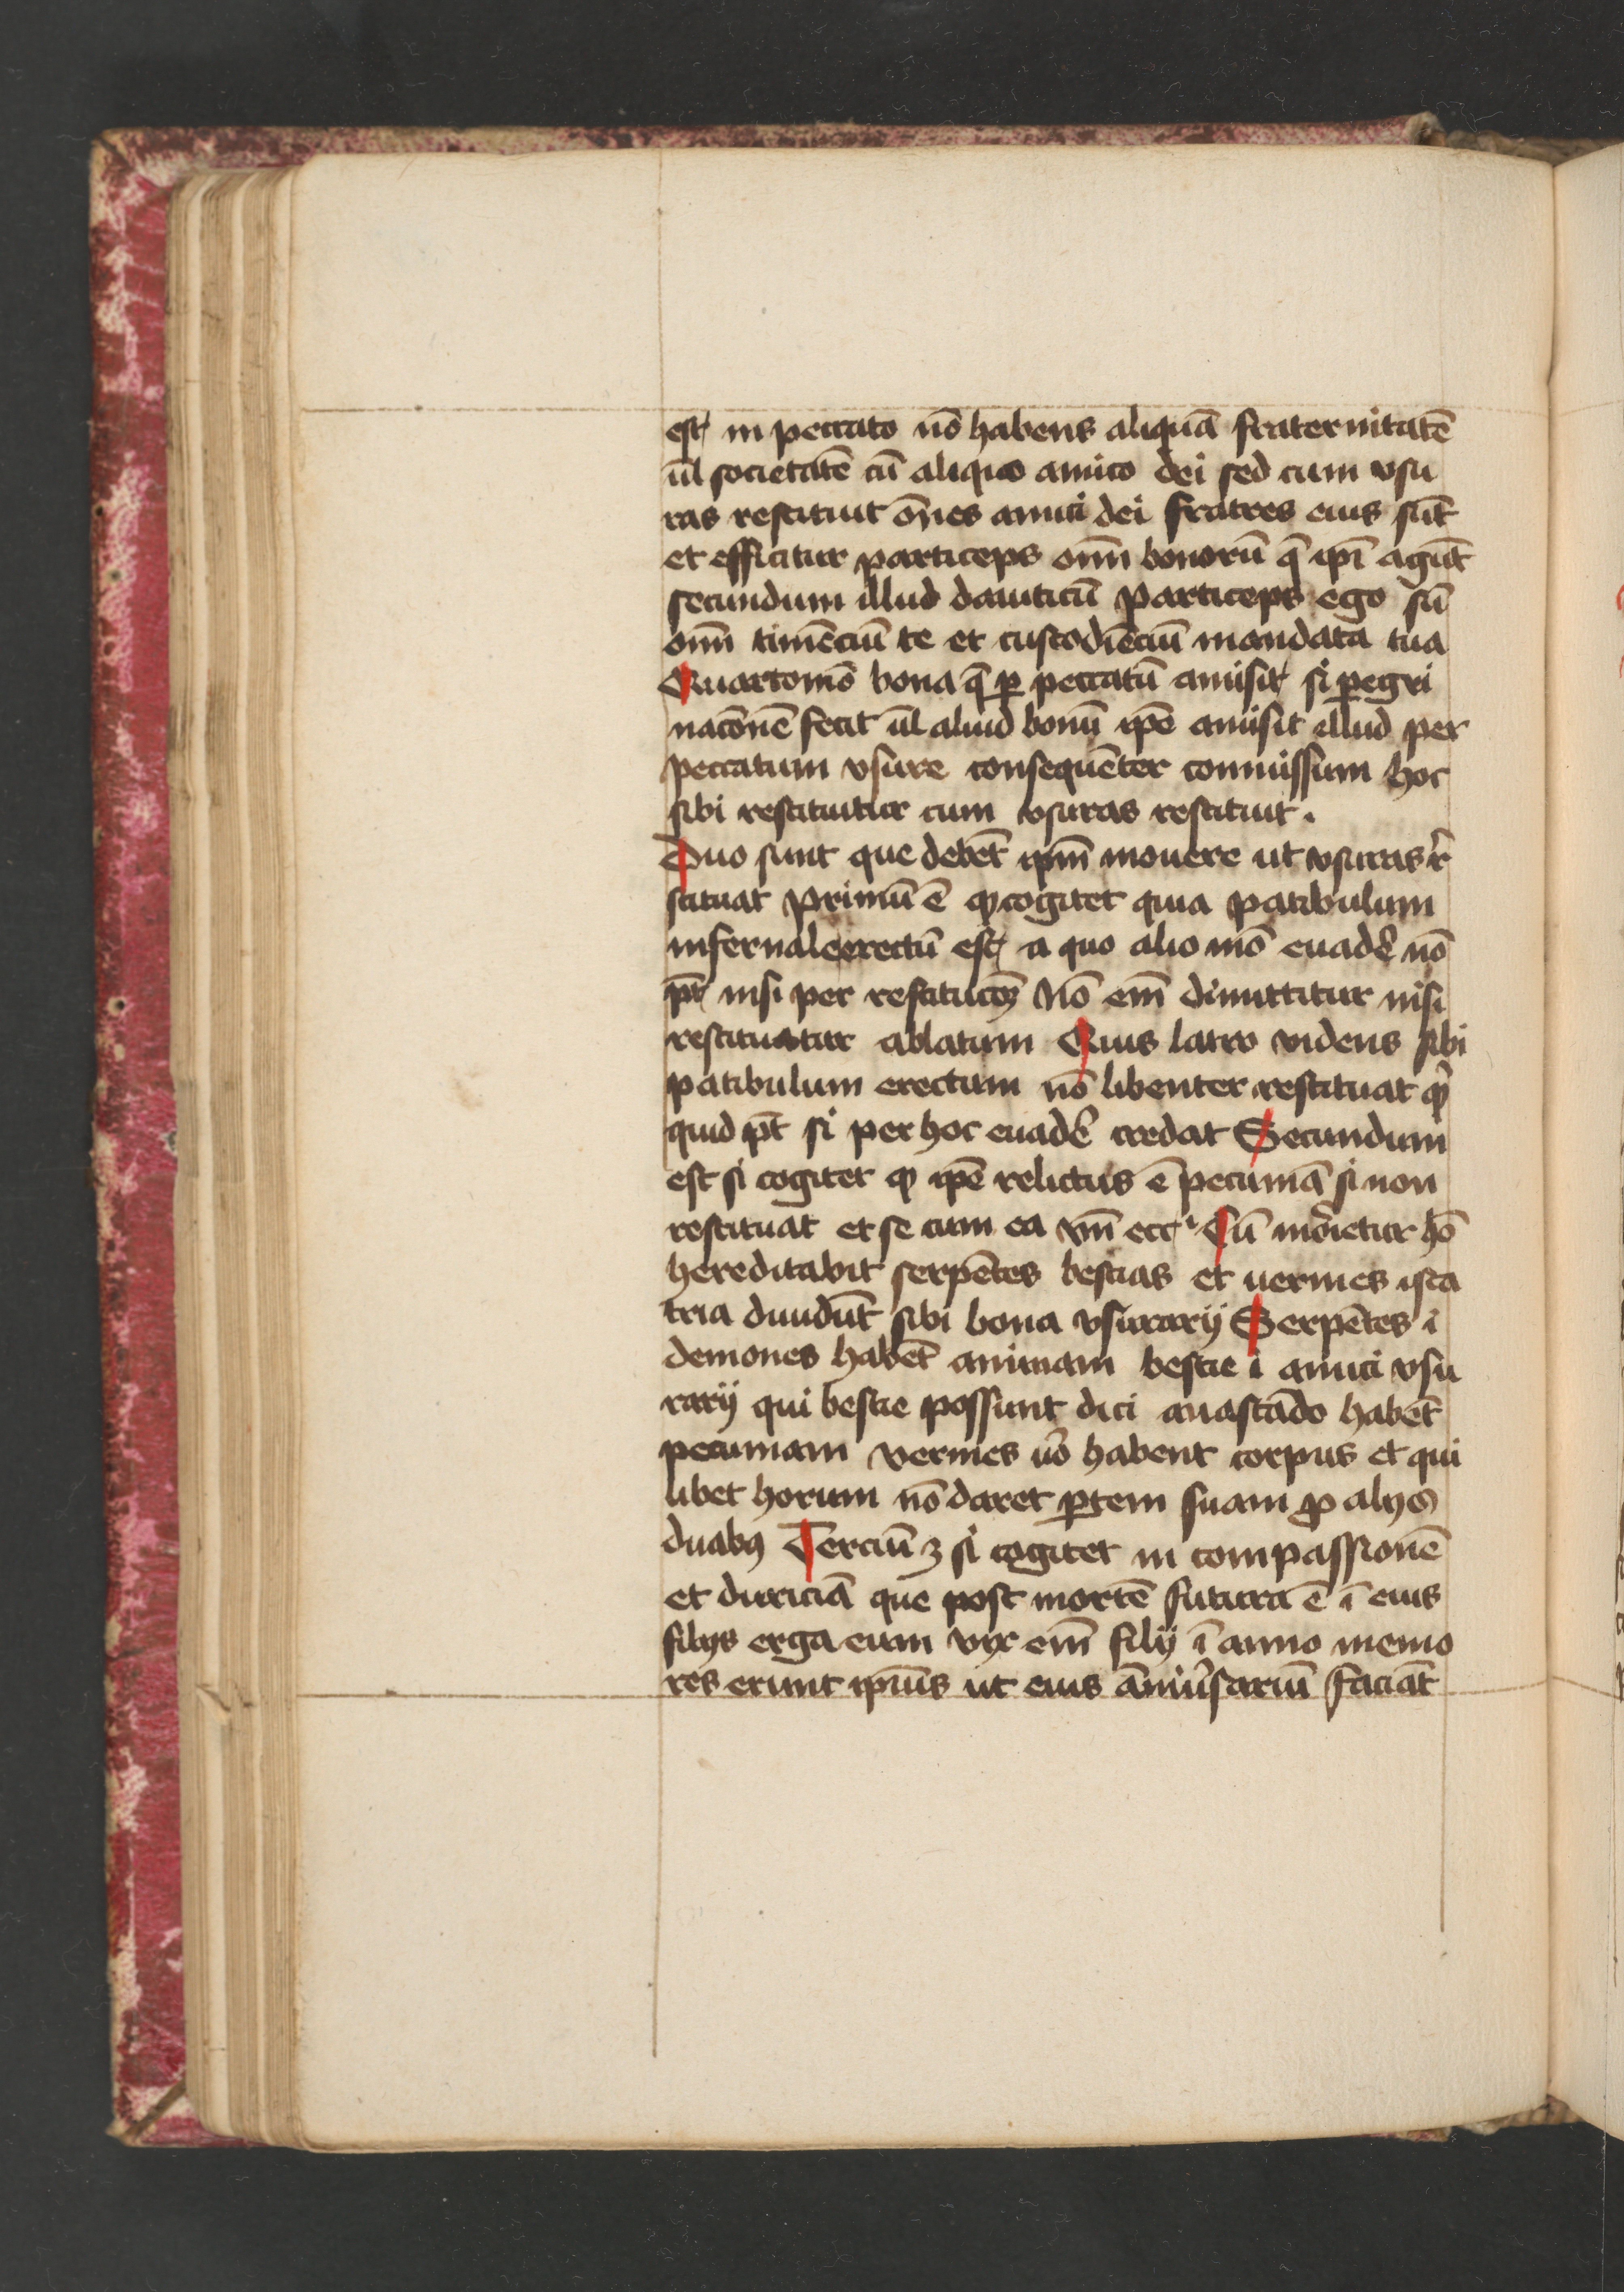 est in peccato nō habens aliquā fraternitatē
ul̄ societatē cū aliquo amico dei sed cum vsu
ras restituit om̄es amici dei fratres eius sūt
et efficitur particeps om̄ī bonorū q̄ ip̄i agūt
secundum illud dauiticū particeps ego sū
om̄ī timēciū te et custodiēciū mandata tua
Quarto mō bona q̄ ꝑ peccatū amisit si ꝑegri
nacōnē fecit ul̄ aliud bonū ip̄e amisit illud per
peccatum vsure consequēter commissum hoc
sibi restituitur cum vsuras restituit .
Duo sunt que debēt ip̄m mouere ut vsuras r̄
stituat Primū ē ꝙ cogitet quia patibulum
infernale erectū est a quo alio mō euadē̓ nō
pt̄ nisi per restitucōꝫ Nō em̄ dimittitur nisi
restituatur ablatum Quis latro videns sibi
patibulum erectum nō libenter restituat qͥ
quid pt̄ si per hoc euadē̓ credat Secundum
est si cogitet ꝙ ip̄e relictus ē pecuniā si non
restituat et se cum ea vn̄ ecc̓ Cū morietur hō
hereditabit serpētes bestias et uermes ista
tria diuidūt sibi bona vsurarij Serpētes i
demones habēt animam bestie i amici vsu
rarij qui bestie possunt dici a uastādo habēt
pecuniam vermes uō habent corpus et qui
libet horum nō daret ꝑtem suam ꝓ alijs
duabꝰ Terciū ꝫ si cogitet in compassionē
et duriciā que post mortē futura ē ī eius
filijs erga eum vix em̄ filij ī anno memo
res erunt ip̄ius ut eius āniūsariū faciāt